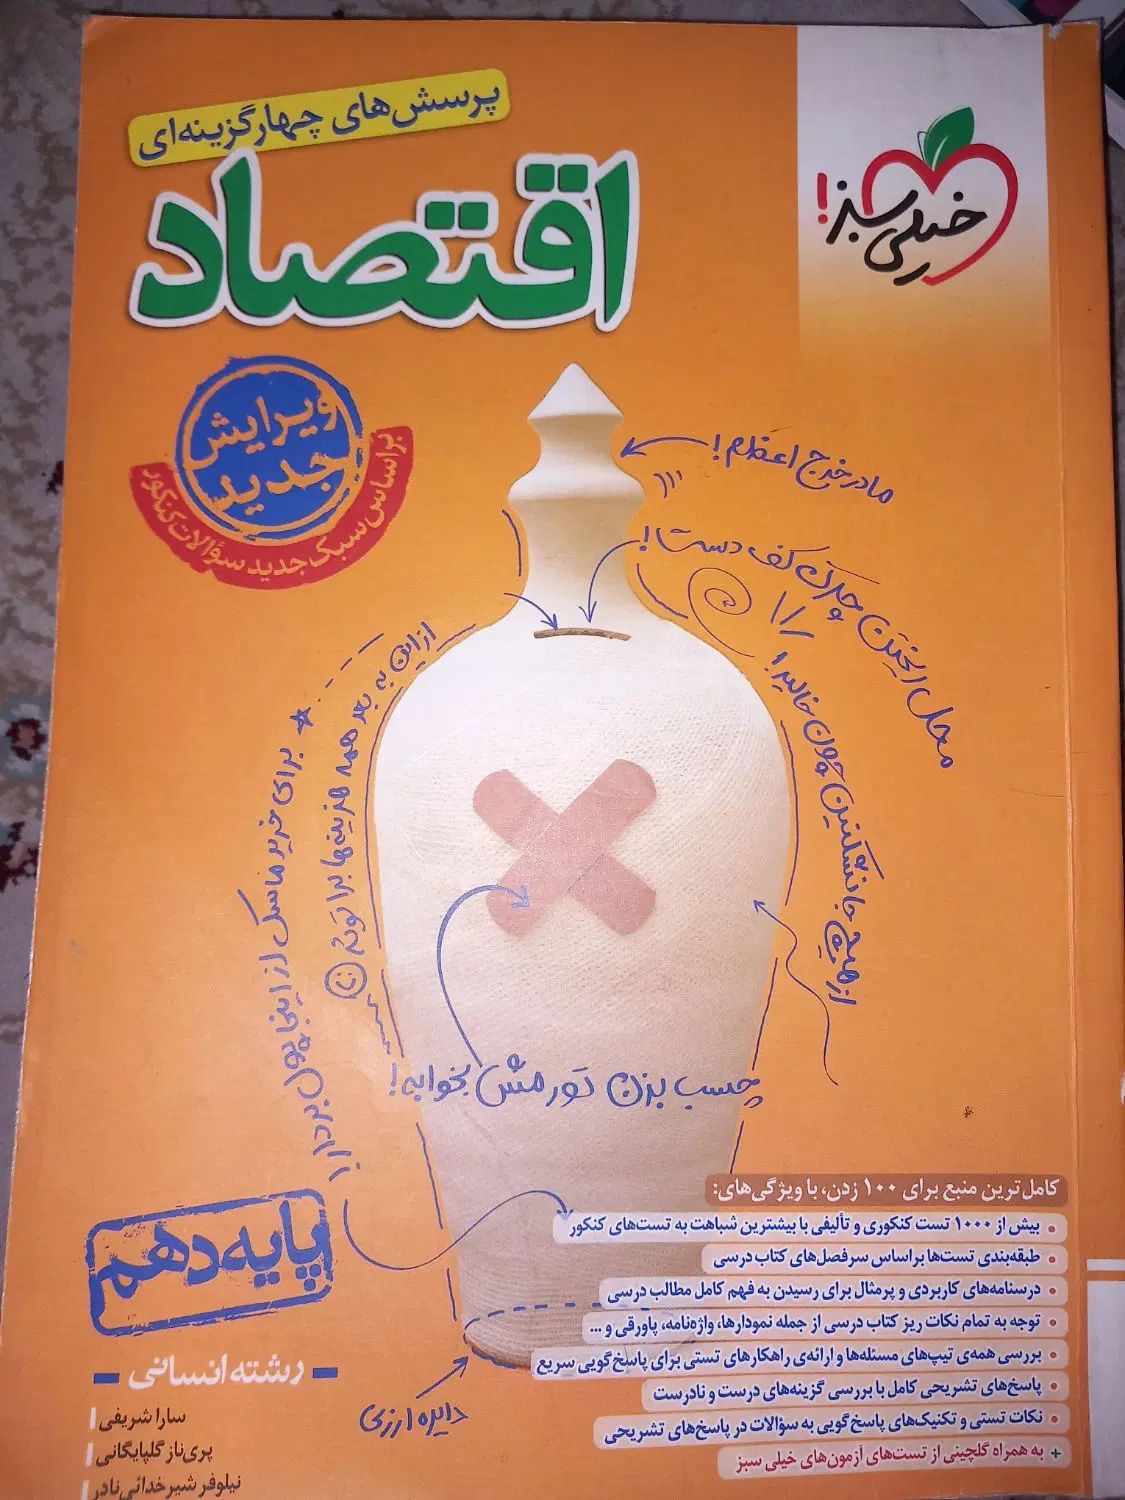 پرسش‌های چهارگزینه‌ای
اقتصاد
خیلی سبز!
ویرایش
جدید
براساس سبک جدید سؤالات کنکور
مادر خرج اعظم!
محل ریختن چرک کف دست!
از این به بعد همه هزینه‌ها برا تو
برای خرید ماسک از اینجا پول بردار!
از هیچ جا نشکنین چون خالیه!
چسب بزن تورمش بخوابه!
دایره ارزی
پایه دهم
رشته انسانی
سارا شریفی
پری‌ناز گلپایگانی
نیلوفر شیرخدائی‌نادر
کامل‌ترین منبع برای ۱۰۰ زدن، با ویژگی‌های:
• بیش از ۱۰۰۰ تست کنکوری و تألیفی با بیشترین شباهت به تست‌های کنکور
• طبقه‌بندی تست‌ها براساس سرفصل‌های کتاب درسی
• درسنامه‌های کاربردی و پرمثال برای رسیدن به فهم کامل مطالب درسی
• توجه به تمام نکات ریز کتاب درسی از جمله نمودارها، واژه‌نامه، پاورقی و ...
• بررسی همه‌ی تیپ‌های مسئله‌ها و ارائه‌ی راهکارهای تستی برای پاسخ‌گویی سریع
• پاسخ‌های تشریحی کامل با بررسی گزینه‌های درست و نادرست
• نکات تستی و تکنیک‌های پاسخ‌گویی به سؤالات در پاسخ‌های تشریحی
+ به همراه گلچینی از تست‌های آزمون‌های خیلی سبز